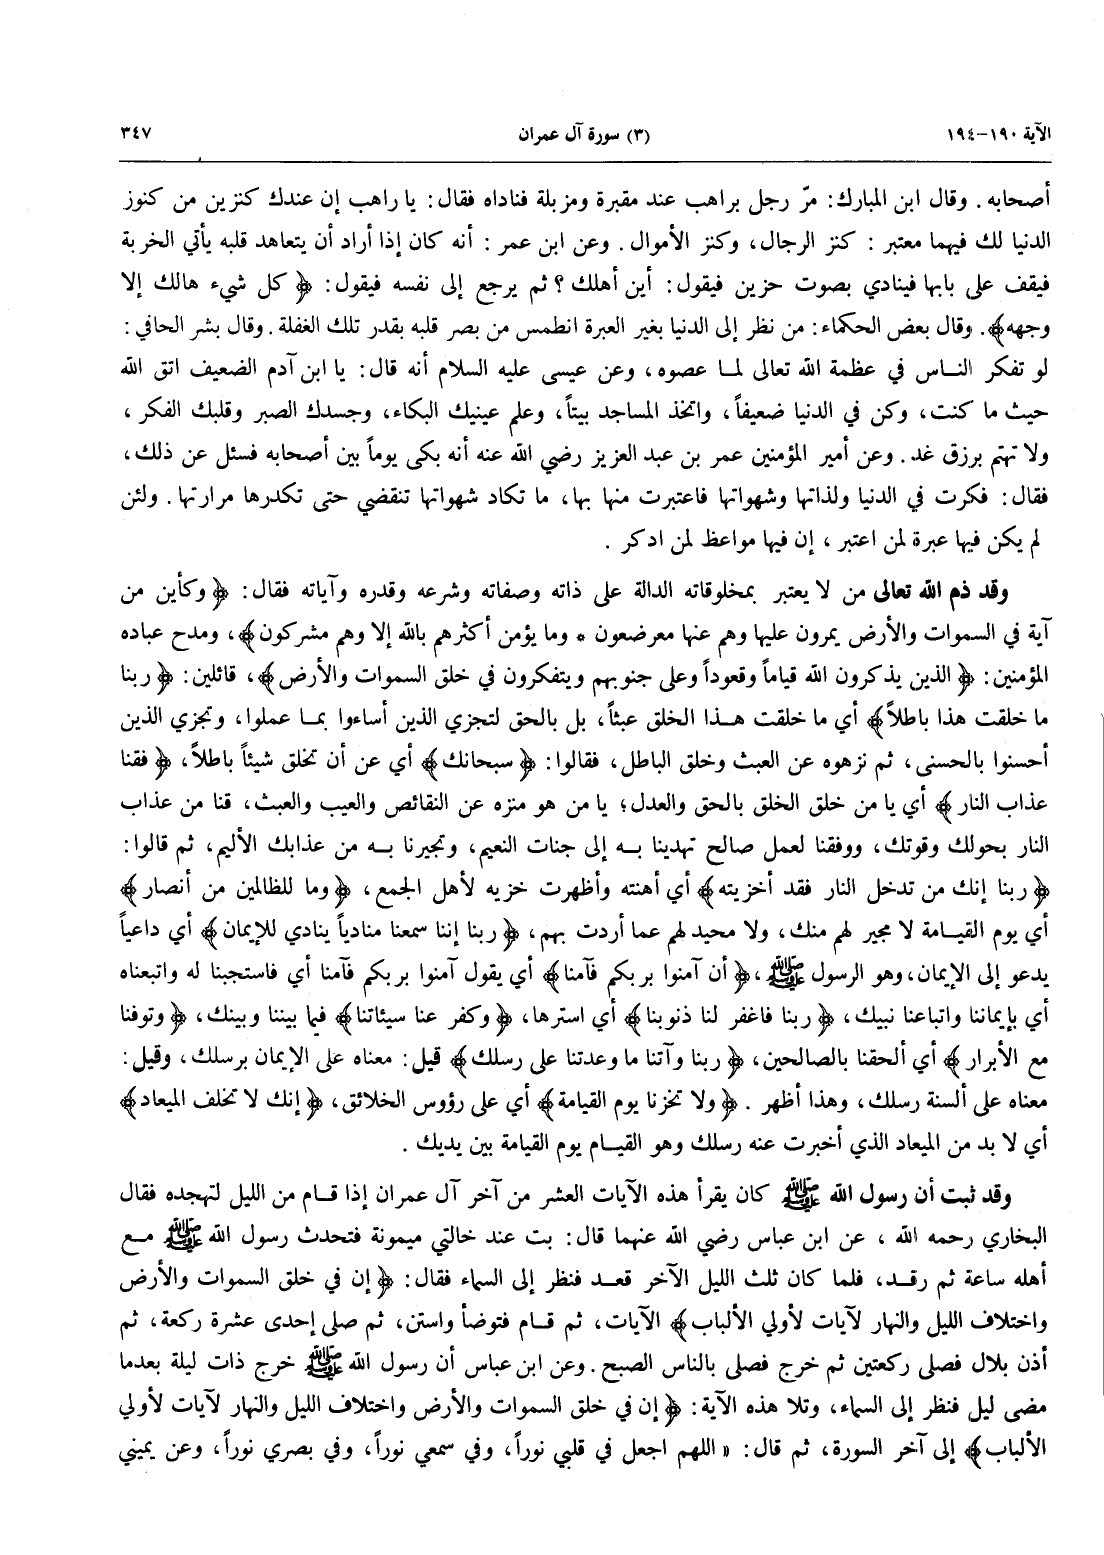 الآية ١٩٠-١٩٤ (٣) سورة آل عمران ٣٤٧
أصحابه. وقال ابن المبارك: مرّ رجل براهب عند مقبرة ومزبلة فناداه فقال: يا راهب إن عندك كنزين من كنوز
الدنيا لك فيهما معتبر: كنز الرجال، وكنز الأموال. وعن ابن عمر: أنه كان إذا أراد أن يتعاهد قلبه يأتي الخربة
فيقف على بابها فينادي بصوت حزين فيقول: أين أهلك؟ ثم يرجع إلى نفسه فيقول: ﴿كل شيء هالك إلا
وجهه﴾. وقال بعض الحكماء: من نظر إلى الدنيا بغير العبرة انطمس من بصر قلبه بقدر تلك الغفلة. وقال بشر الحافي:
لو تفكر الناس في عظمة الله تعالى لما عصوه، وعن عيسى عليه السلام أنه قال: يا ابن آدم الضعيف اتق الله
حيث ما كنت، وكن في الدنيا ضعيفاً، واتخذ المساجد بيتاً، وعلم عينيك البكاء، وجسدك الصبر وقلبك الفكر،
ولا تهتم برزق غد. وعن أمير المؤمنين عمر بن عبد العزيز رضي الله عنه أنه بكى يوماً بين أصحابه فسئل عن ذلك،
فقال: فكرت في الدنيا ولذاتها وشهواتها فاعتبرت منها بها، ما تكاد شهواتها تنقضي حتى تكدرها مرارتها. ولئن
لم يكن فيها عبرة لمن اعتبر، إن فيها مواعظ لمن ادكر.
وقد ذم الله تعالى من لا يعتبر بمخلوقاته الدالة على ذاته وصفاته وشرعه وقدره وآياته فقال: ﴿وكأين من
آية في السموات والأرض يمرون عليها وهم عنها معرضعون * وما يؤمن أكثرهم بالله إلا وهم مشركون﴾، ومدح عباده
المؤمنين: ﴿الذين يذكرون الله قياماً وقعوداً وعلى جنوبهم ويتفكرون في خلق السموات والأرض﴾، قائلين: ﴿ربنا
ما خلقت هذا باطلاً﴾ أي ما خلقت هذا الخلق عبثاً، بل بالحق لتجزي الذين أساءوا بما عملوا، وتجزي الذين
أحسنوا بالحسنى، ثم نزهوه عن العبث وخلق الباطل، فقالوا: ﴿سبحانك﴾ أي عن أن تخلق شيئاً باطلاً، ﴿فقنا
عذاب النار﴾ أي يا من خلق الخلق بالحق والعدل؛ يا من هو منزه عن النقائص والعيب والعبث، قنا من عذاب
النار بحولك وقوتك، ووفقنا لعمل صالح تهدينا به إلى جنات النعيم، وتجيرنا به من عذابك الأليم، ثم قالوا:
﴿ربنا إنك من تدخل النار فقد أخزيته﴾ أي أهنته وأظهرت خزيه لأهل الجمع، ﴿وما للظالمين من أنصار﴾
أي يوم القيامة لا مجير لهم منك، ولا محيد لهم عما أردت بهم، ﴿ربنا إننا سمعنا منادياً ينادي للإيمان﴾ أي داعياً
يدعو إلى الإيمان، وهو الرسول ﷺ، ﴿أن آمنوا بربكم فآمنا﴾ أي يقول آمنوا بربكم فآمنا أي فاستجبنا له واتبعناه
أي بإيماننا واتباعنا نبيك، ﴿ربنا فاغفر لنا ذنوبنا﴾ أي استرها، ﴿وكفر عنا سيئاتنا﴾ فيما بيننا وبينك، ﴿وتوفنا
مع الأبرار﴾ أي ألحقنا بالصالحين، ﴿ربنا وآتنا ما وعدتنا على رسلك﴾ قيل: معناه على الإيمان برسلك، وقيل:
معناه على ألسنة رسلك، وهذا أظهر. ﴿ولا تخزنا يوم القيامة﴾ أي على رؤوس الخلائق، ﴿إنك لا تخلف الميعاد﴾
أي لا بد من الميعاد الذي أخبرت عنه رسلك وهو القيام يوم القيامة بين يديك.
وقد ثبت أن رسول الله ﷺ كان يقرأ هذه الآيات العشر من آخر آل عمران إذا قام من الليل لتهجده فقال
البخاري رحمه الله، عن ابن عباس رضي الله عنهما قال: بت عند خالتي ميمونة فتحدث رسول الله ﷺ مع
أهله ساعة ثم رقد، فلما كان ثلث الليل الآخر قعد فنظر إلى السماء فقال: ﴿إن في خلق السموات والأرض
واختلاف الليل والنهار لآيات لأولي الألباب﴾ الآيات، ثم قام فتوضأ واستن، ثم صلى إحدى عشرة ركعة، ثم
أذن بلال فصلى ركعتين ثم خرج فصلى بالناس الصبح. وعن ابن عباس أن رسول الله ﷺ خرج ذات ليلة بعدما
مضى ليل فنظر إلى السماء، وتلا هذه الآية: ﴿إن في خلق السموات والأرض واختلاف الليل والنهار لآيات لأولي
الألباب﴾ إلى آخر السورة، ثم قال: «اللهم اجعل في قلبي نوراً، وفي سمعي نوراً، وفي بصري نوراً، وعن يميني